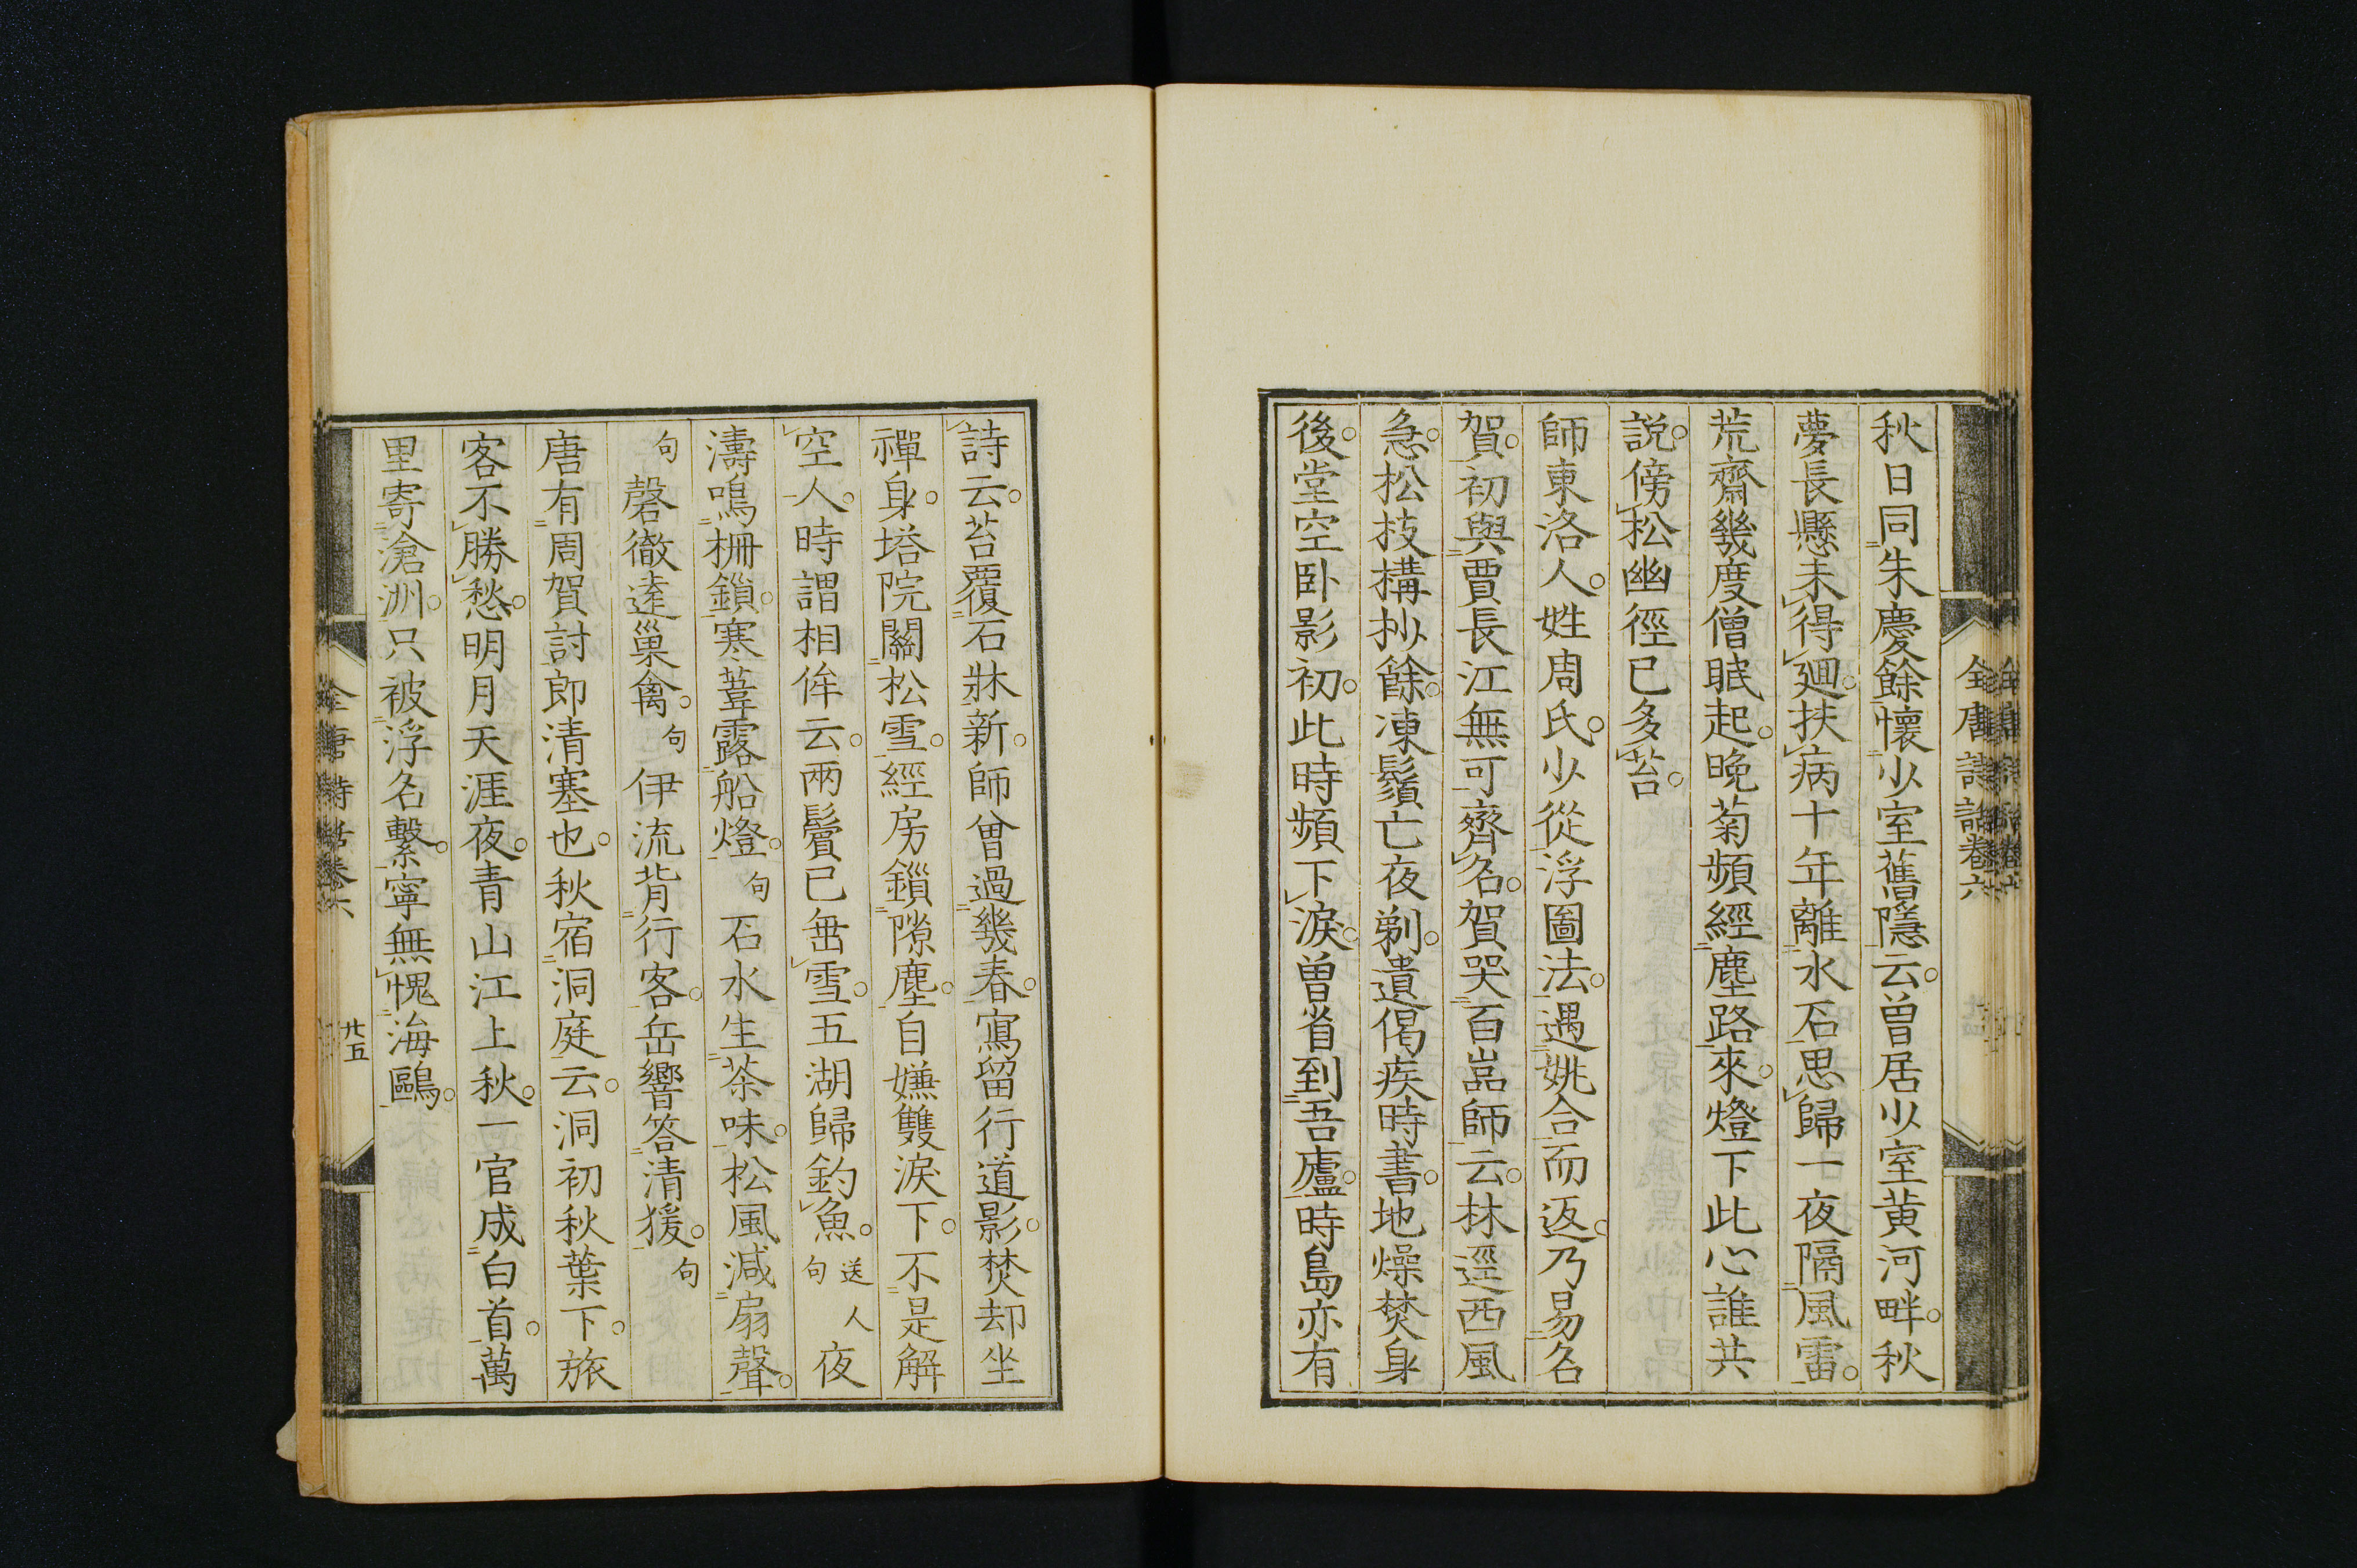 秋日同朱慶餘懷少室舊隱云曾居少室黄河畔秋
夢長懸未得廻扶病十年離水石思歸一夜隔風雷
荒齋幾度僧眠起晚菊頻經塵路來燈下此心誰共
説傍松幽徑已多苔
師東洛人姓周氏少從浮圖法遇姚合而返乃易名
賀初與賈長江無可齊名賀哭百嵓師云林逕西風
急松枝構抄餘凍鬚亡夜剃遺偈疾時書地燥焚身
後堂空卧影初此時頻下淚曾省到吾廬時島亦有
全唐詩話卷六
詩云苔覆石牀新師曾過幾春寫留行道影焚却坐
禪身塔院關松雪經房鎻隙塵自嫌雙淚下不是解
空人時謂相侔云兩鬢已垂雪五湖歸釣魚送人句夜
濤鳴柵鎻寒葦露船燈句石水生茶味松風減扇聲
句磬徹遠巢禽句伊流背行客岳響答清猨句
唐有周賀討即清塞也秋宿洞庭云洞初秋葉下旅
客不勝愁明月天涯夜青山江上秋一官成白首萬
里寄滄洲只被浮名繫寧無愧海鷗
全唐詩話卷六
廿五